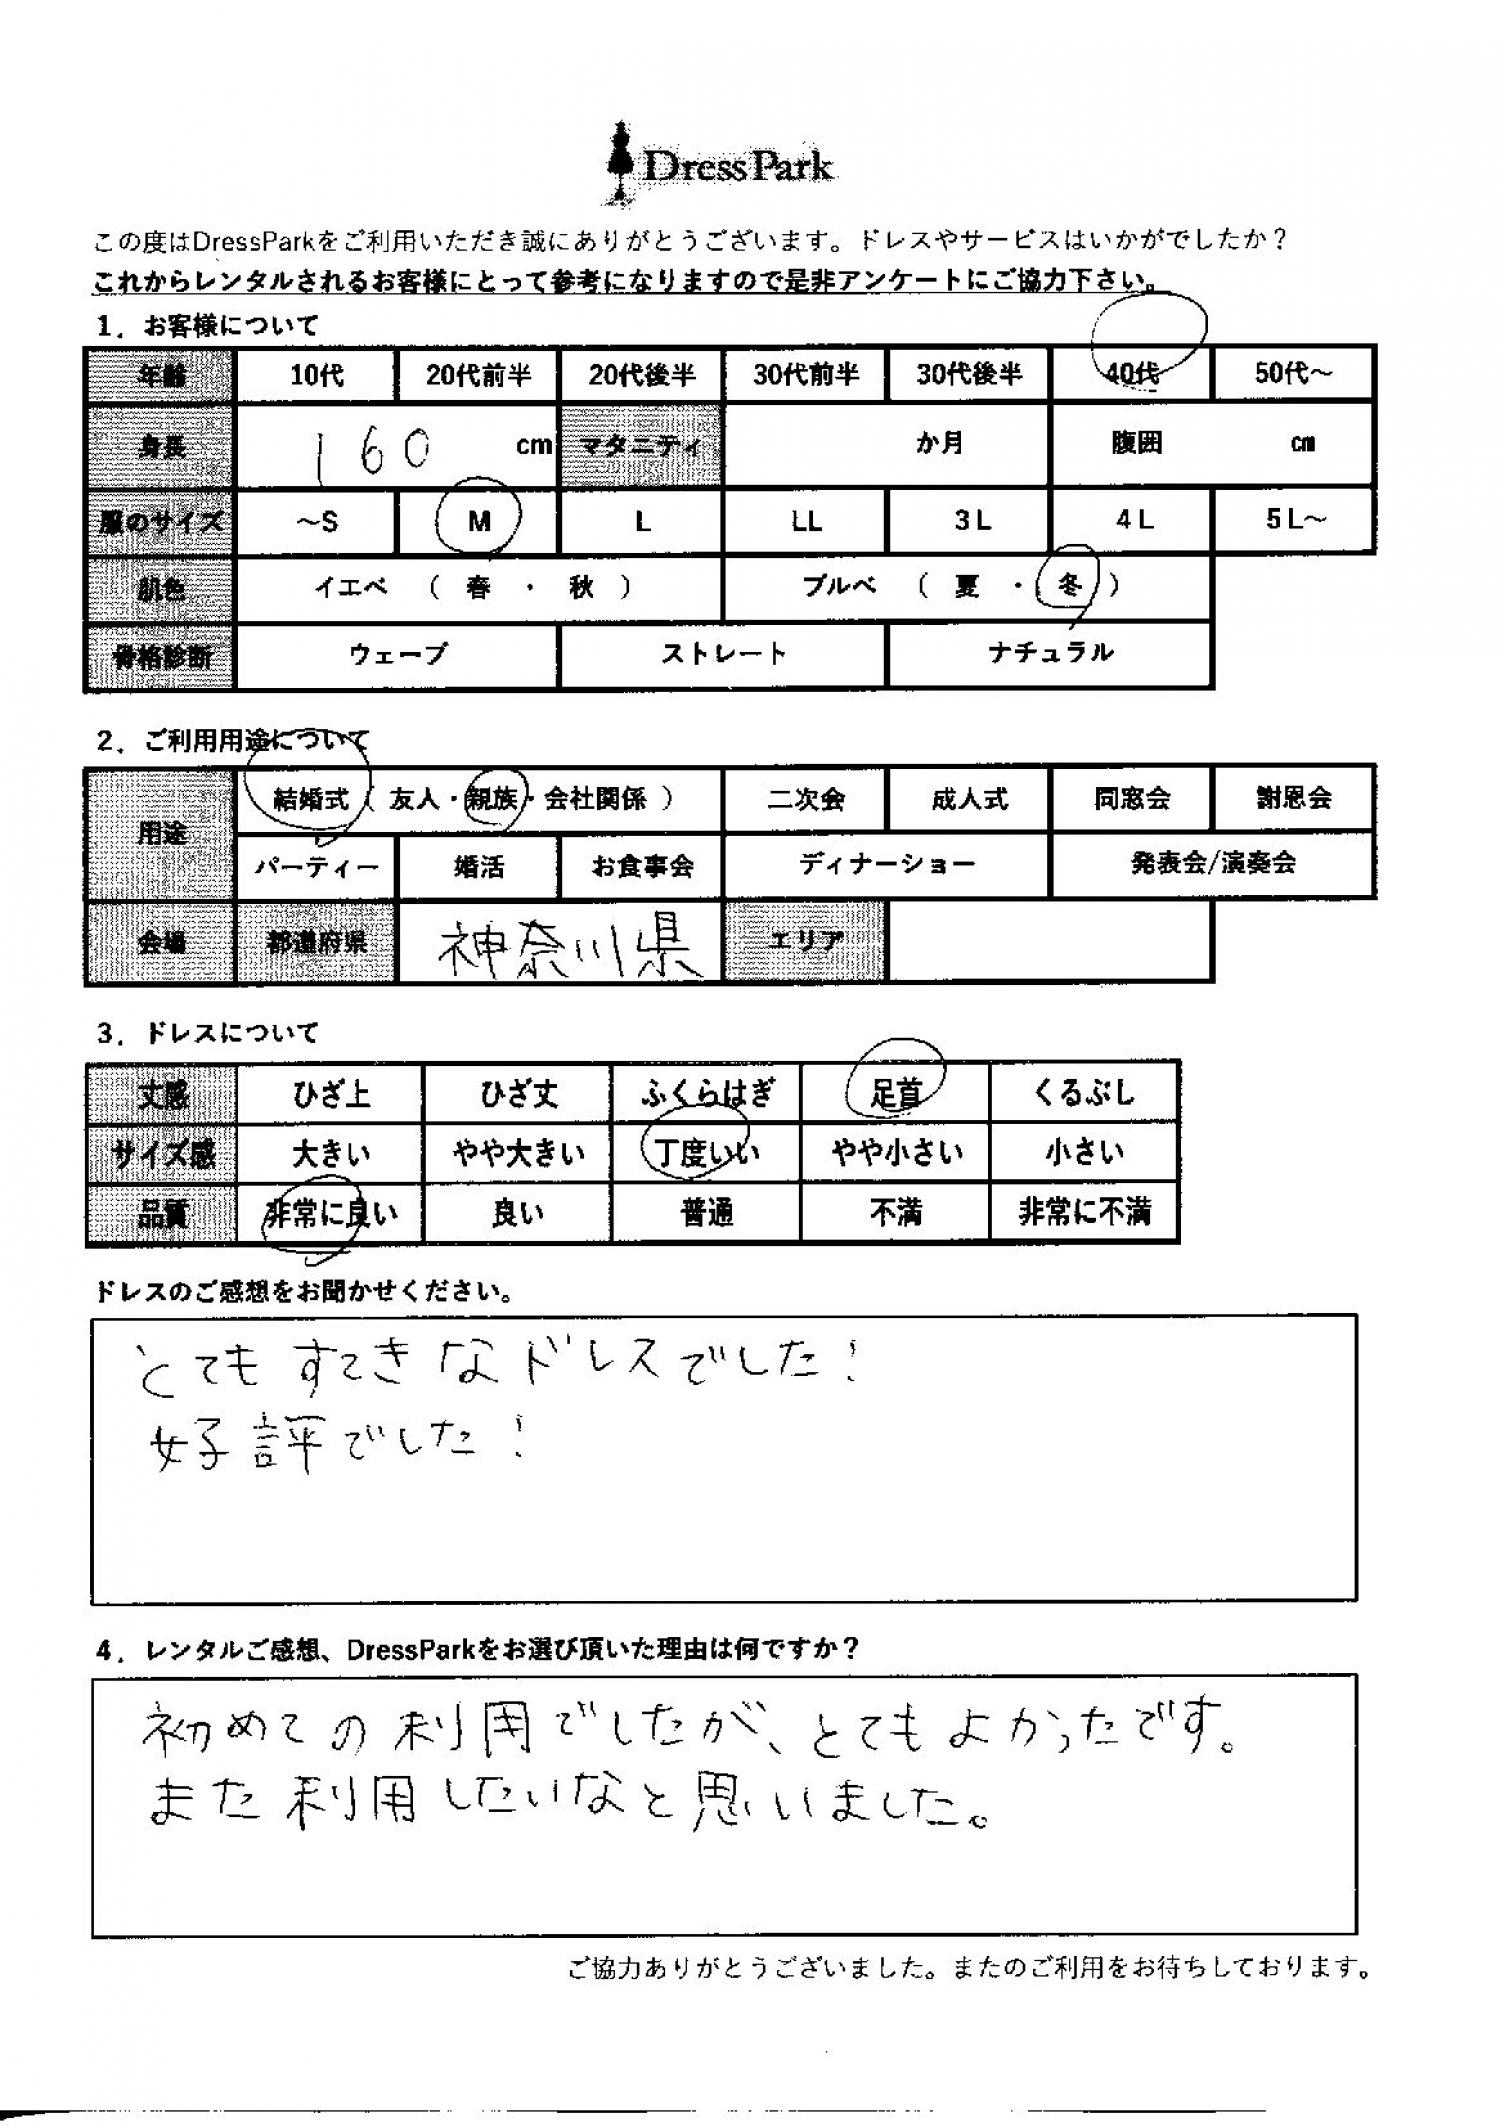 DressPark
この度はDressParkをご利用いただき誠にありがとうございます。ドレスやサービスはいかがでしたか？
これからレンタルされるお客様にとって参考になりますので是非アンケートにご協力下さい。
1．お客様について
年齢 10代 20代前半 20代後半 30代前半 30代後半 40代 50代～
身長 160 cm マタニティ か月 腹囲 cm
服のサイズ ～S M L LL 3L 4L 5L～
肌色 イエベ （ 春 ・ 秋 ） ブルベ （ 夏 ・ 冬 ）
骨格診断 ウェーブ ストレート ナチュラル
2．ご利用用途について
用途 結婚式（ 友人・親族・会社関係 ） 二次会 成人式 同窓会 謝恩会
パーティー 婚活 お食事会 ディナーショー 発表会/演奏会
会場 都道府県 神奈川県 エリア
3．ドレスについて
丈感 ひざ上 ひざ丈 ふくらはぎ 足首 くるぶし
サイズ感 大きい やや大きい 丁度いい やや小さい 小さい
品質 非常に良い 良い 普通 不満 非常に不満
ドレスのご感想をお聞かせください。
とてもすてきなドレスでした！
好評でした！
4．レンタルご感想、DressParkをお選び頂いた理由は何ですか？
初めての利用でしたが、とてもよかったです。
また利用したいなと思いました。
ご協力ありがとうございました。またのご利用をお待ちしております。